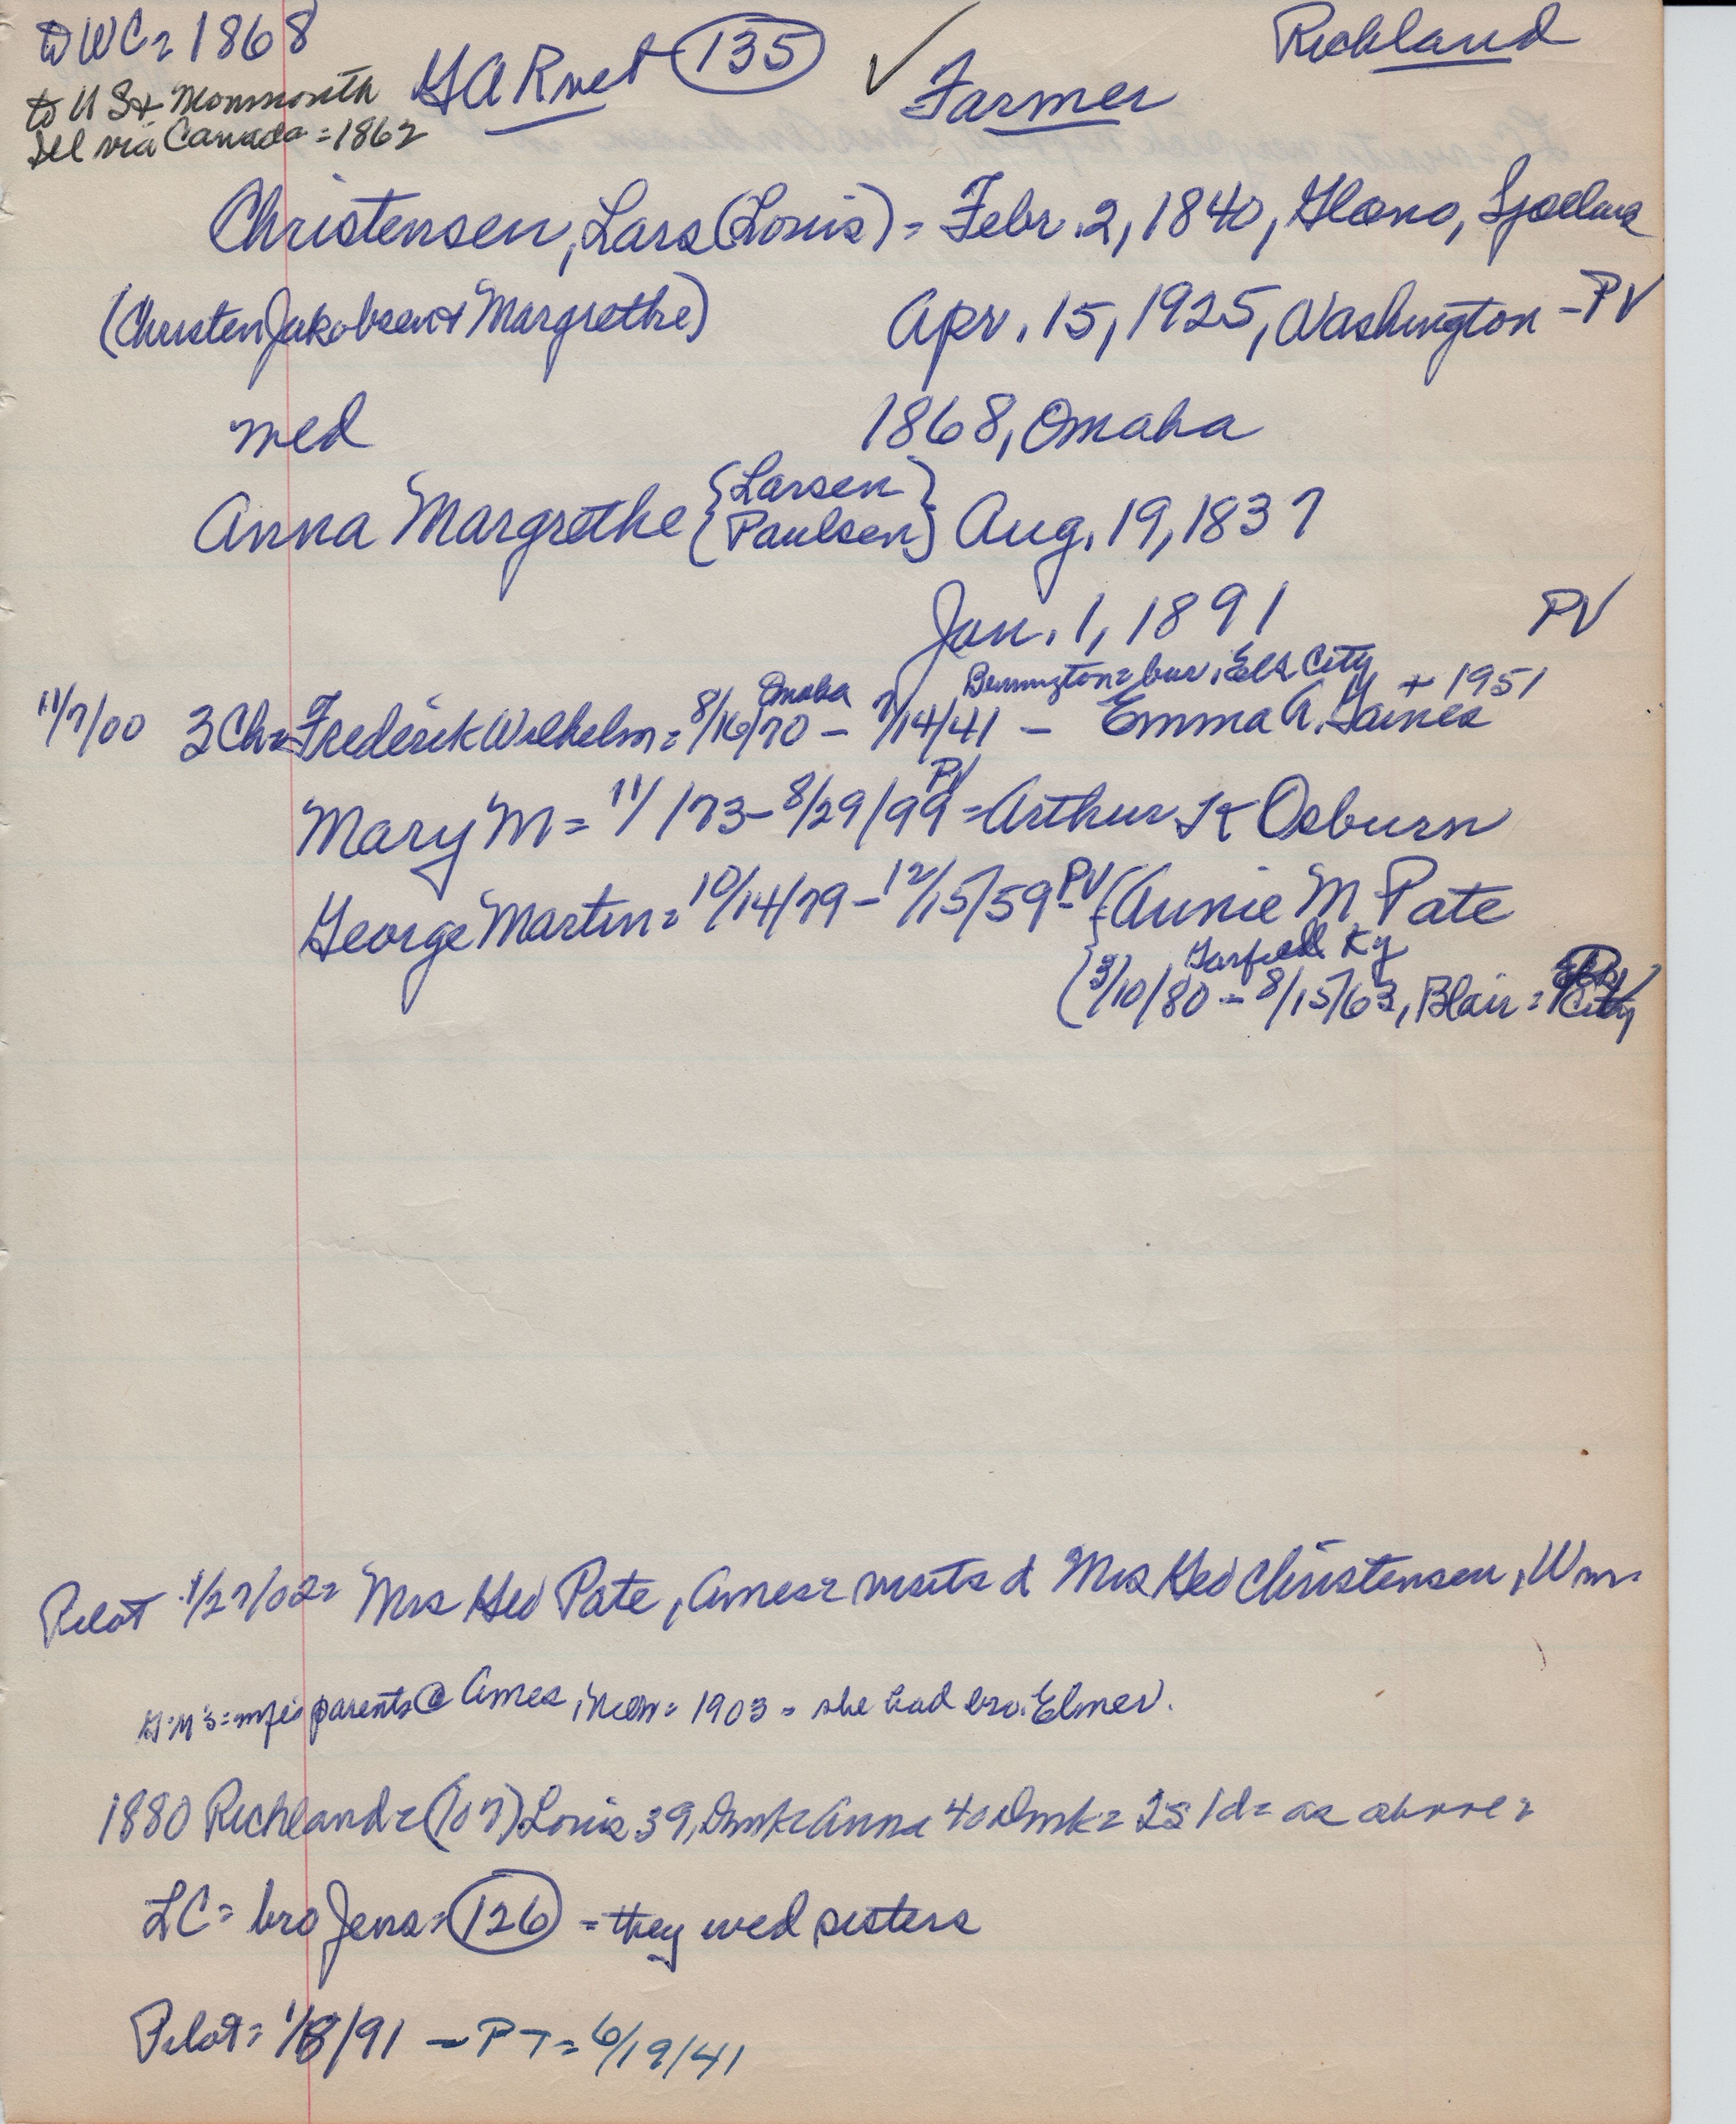 to WC = 1868
GAR vet (135) ✓
Richland
to US + Monmouth
Ill via Canada = 1862
Farmer
Christensen, Lars (Louis) = Febr. 2, 1840, Glæno, Sjælland
(Christen Jakobsen + Margrethe) Apr. 15, 1925, Washington - PV
wed 1868, Omaha
Anna Margrethe {Larsen
Paulsen} Aug. 19, 1837
Jan. 1, 1891 PV
Omaha Bennington = bur. Elk City + 1951
11/7/00 3 Ch = Frederik Wilhelm = 8/16/70 - 7/14/41 - Emma A. Gaines
PV
Mary M = 11/ /73 - 8/29/99 = Arthur K Osburn
George Martin = 10/14/79 - 12/15/59 - PV {Annie M Pate
Garfield Ky
(3/10/80 - 8/15/63, Blair = City
Pilot 1/27/02 = Mrs Geo Pate, Ames = visits d Mrs Geo Christensen, Wm.
GM's = wife's parents @ Ames, = 1903 = she had bro. Elmer.
1880 Richland = (107) Louis 39, Dmk = Anna 40 Dmk = 2s 1d = as above =
LC = bro Jens = (126) = they wed sisters
Pilot = 1/8/91 - PT = 6/19/41